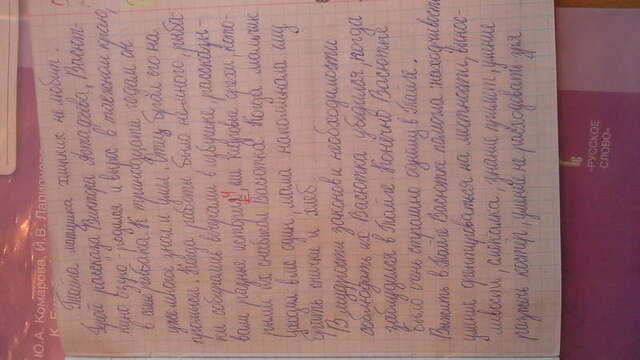 Ю.А. Комарова, И.В. Ларионова
К.
Тайга матушка хлипких не любит.
Герой рассказа Виктора Астафьева, Васют-
кино озуро - родился и вырос в таёжном краю,
в семье рыбака. К тринадцати годам он
уже многое знал и умел. Отец брал его на
промысел. Когда работы было не много, рыба-
ки собирались вечерами в избушке, рассказы-
вали разные истории, ели кедровые орехи, кото-
рыми их снабжал Васютка. Когда мальчик
уходил в лес один, мама напоминала ему
брать спички и хлеб.
В мудрости законов и необходимости
соблюдать их Васютка убедился, когда
заблудился в Тайге. Конечно Васютке
было очень страшно одному в Тайге.
Выжить в Тайге Васютке помогла находчивость
умение орентироваться на местности, вынос-
ливость, смекалка, знание примет, умение
разжечь костёр, умение не расходовать зря
«РУССКОЕ
СЛОВО»